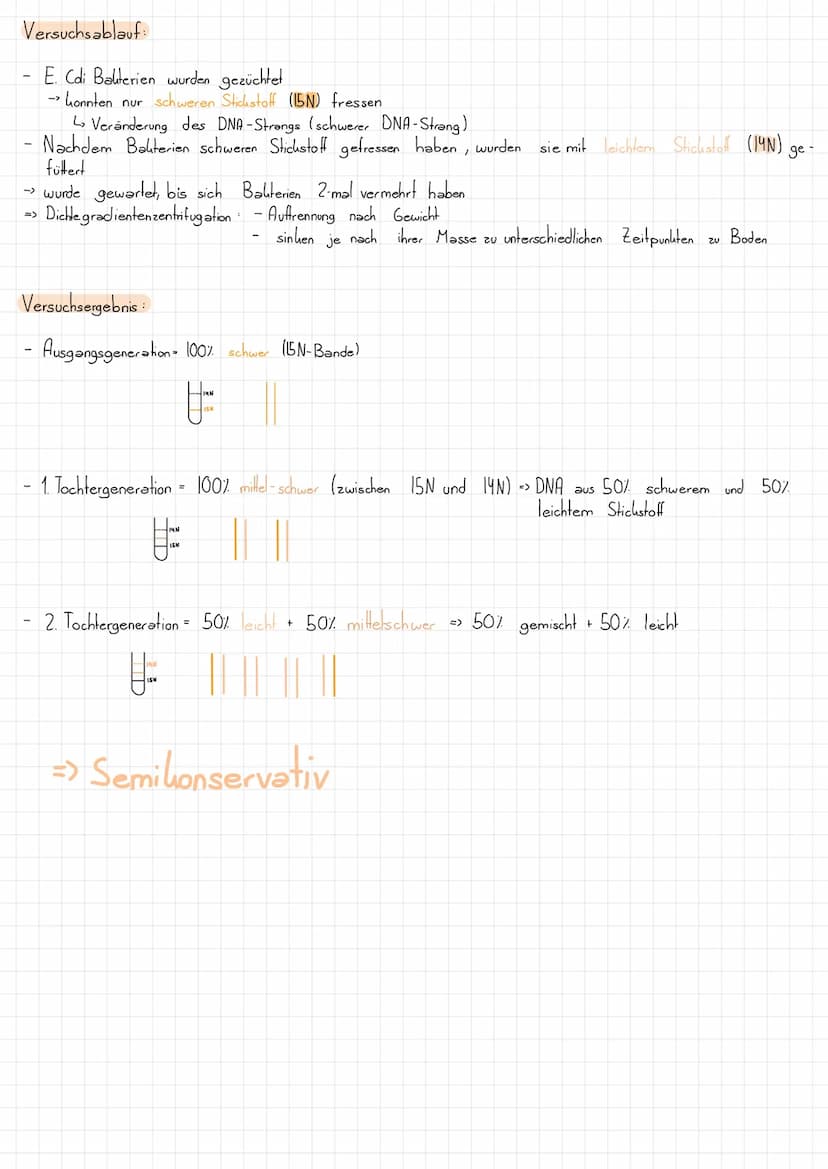 Versuchsablauf:
- E. Coli Bakterien wurden gezüchtet
-> konnten nur schweren Stickstoff (15N) fressen
↳ Veränderung des DNA-Strangs (schwerer DNA-Strang)
- Nachdem Bakterien schweren Stickstoff gefressen haben, wurden sie mit leichtem Stickstoff (14N) ge-
füttert
-> wurde gewartet, bis sich Bakterien 2-mal vermehrt haben
=> Dichtegradientenzentrifugation: - Auftrennung nach Gewicht
- sinken je nach ihrer Masse zu unterschiedlichen Zeitpunkten zu Boden
Versuchsergebnis:
- Ausgangsgeneration = 100% schwer (15N-Bande)
14N
15N
- 1. Tochtergeneration = 100% mittel-schwer (zwischen 15N und 14N) => DNA aus 50% schwerem und 50%
leichtem Stickstoff
14N
15N
- 2. Tochtergeneration = 50% leicht + 50% mittelschwer => 50% gemischt + 50% leicht
14N
15N
=> Semikonservativ